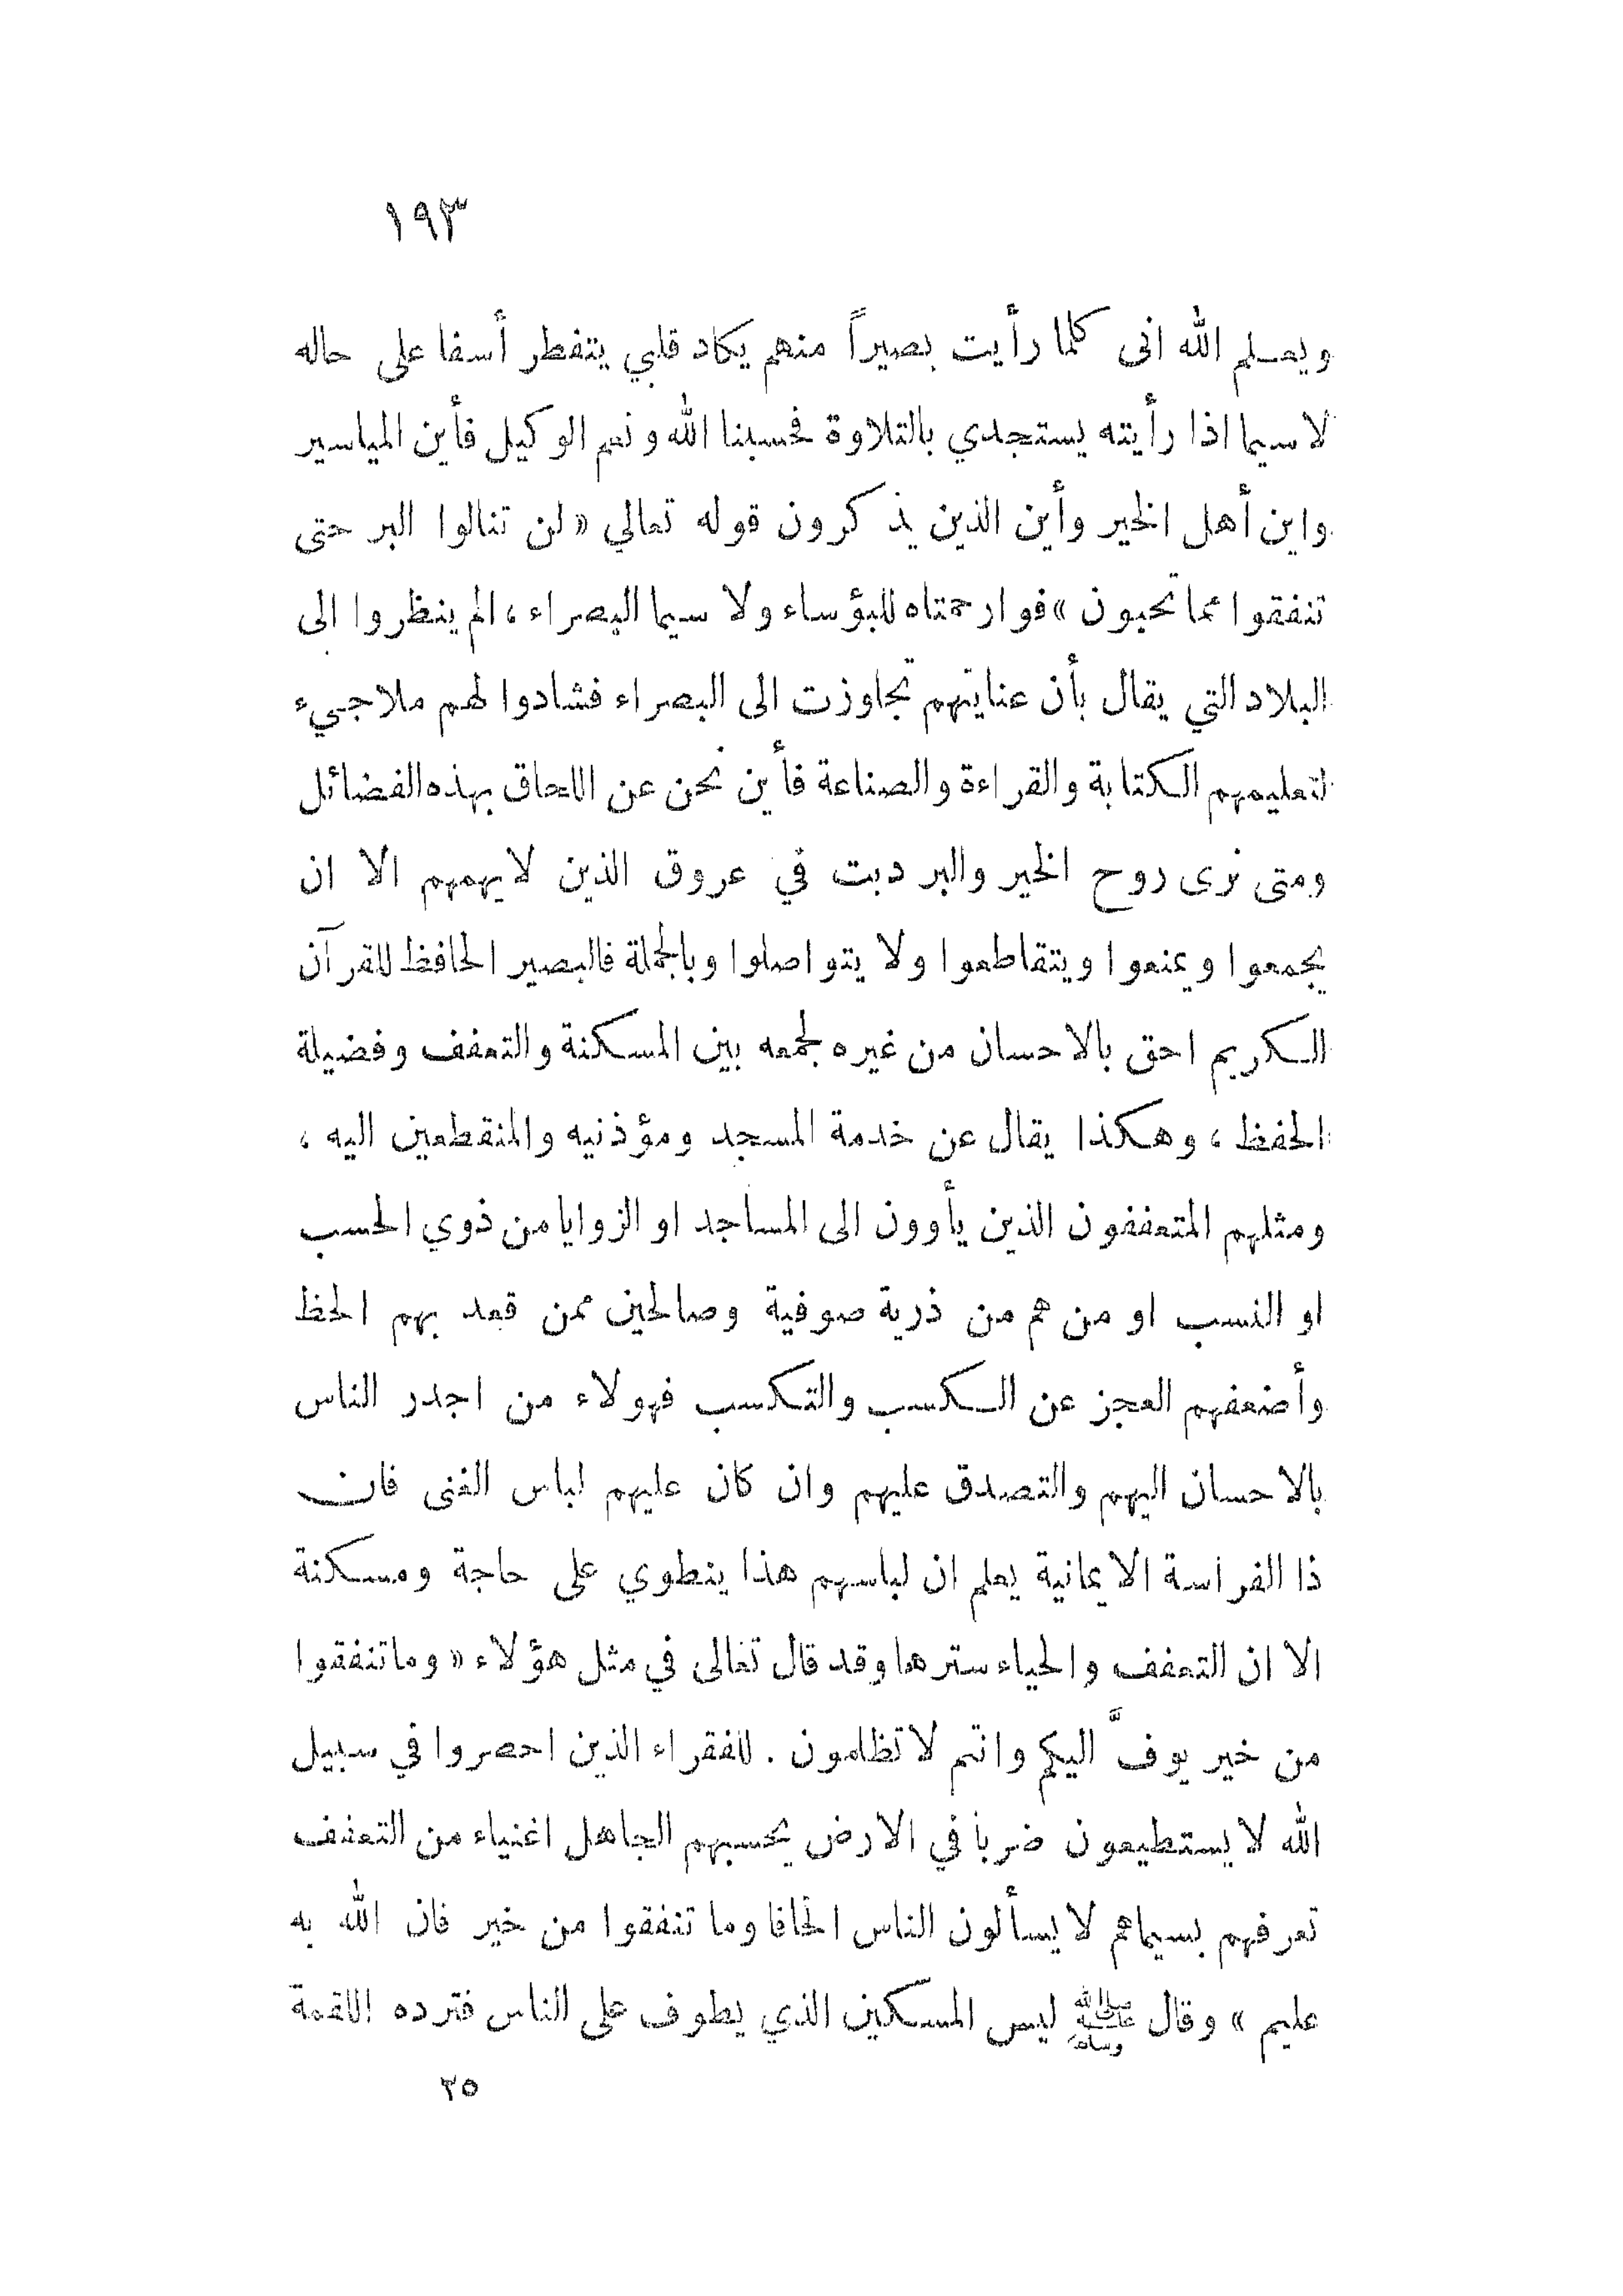 ١٩٣
ويعلم الله انى كلما رأيت بصيراً منهم يكاد قلبي يتفطر أسفا على حاله
لا سيما اذا رأيته يستجدي بالتلاوة فحسبنا الله ونعم الوكيل فأين المياسير
واين أهل الخير وأين الذين يذكرون قوله تعالي «لن تنالوا البر حتى
تنفقوا مما تحبون» فوارحمتاه للبؤساء ولا سيما البصراء ، الم ينظروا الى
البلاد التي يقال بأن عنايتهم تجاوزت الى البصراء فشادوا لهم ملاجيء
لتعليمهم الكتابة والقراءة والصناعة فأين نحن عن اللحاق بهذه الفضائل
ومتى نرى روح الخير والبر دبت في عروق الذين لا يهمهم الا ان
يجمعوا ويمنعوا ويتقاطعوا ولا يتواصلوا وبالجملة فالبصير الحافظ للقرآن
الكريم احق بالاحسان من غيره لجمعه بين المسكنة والتعفف وفضيلة
الحفظ ، وهكذا يقال عن خدمة المسجد ومؤذنيه والمنقطعين اليه ،
ومثلهم المتعففون الذين يأوون الى المساجد او الزوايا من ذوي الحسب
او النسب او من هم من ذرية صوفية وصالحين ممن قعد بهم الحظ
وأضعفهم العجز عن الكسب والتكسب فهولاء من اجدر الناس
بالاحسان اليهم والتصدق عليهم وان كان عليهم لباس الغنى فان
ذا الفراسة الايمانية يعلم ان لباسهم هذا ينطوي على حاجة ومسكنة
الا ان التعفف والحياء سترهما وقد قال تعالى في مثل هؤلاء «وما تنفقوا
من خير يوفَّ اليكم وانتم لا تظلمون . للفقراء الذين احصروا في سبيل
الله لا يستطيعون ضربا في الارض يحسبهم الجاهل اغنياء من التعفف
تعرفهم بسيماهم لا يسألون الناس الحافا وما تنفقوا من خير فان الله به
عليم» وقال ﷺ ليس المسكين الذي يطوف على الناس فترده اللقمة
٢٥